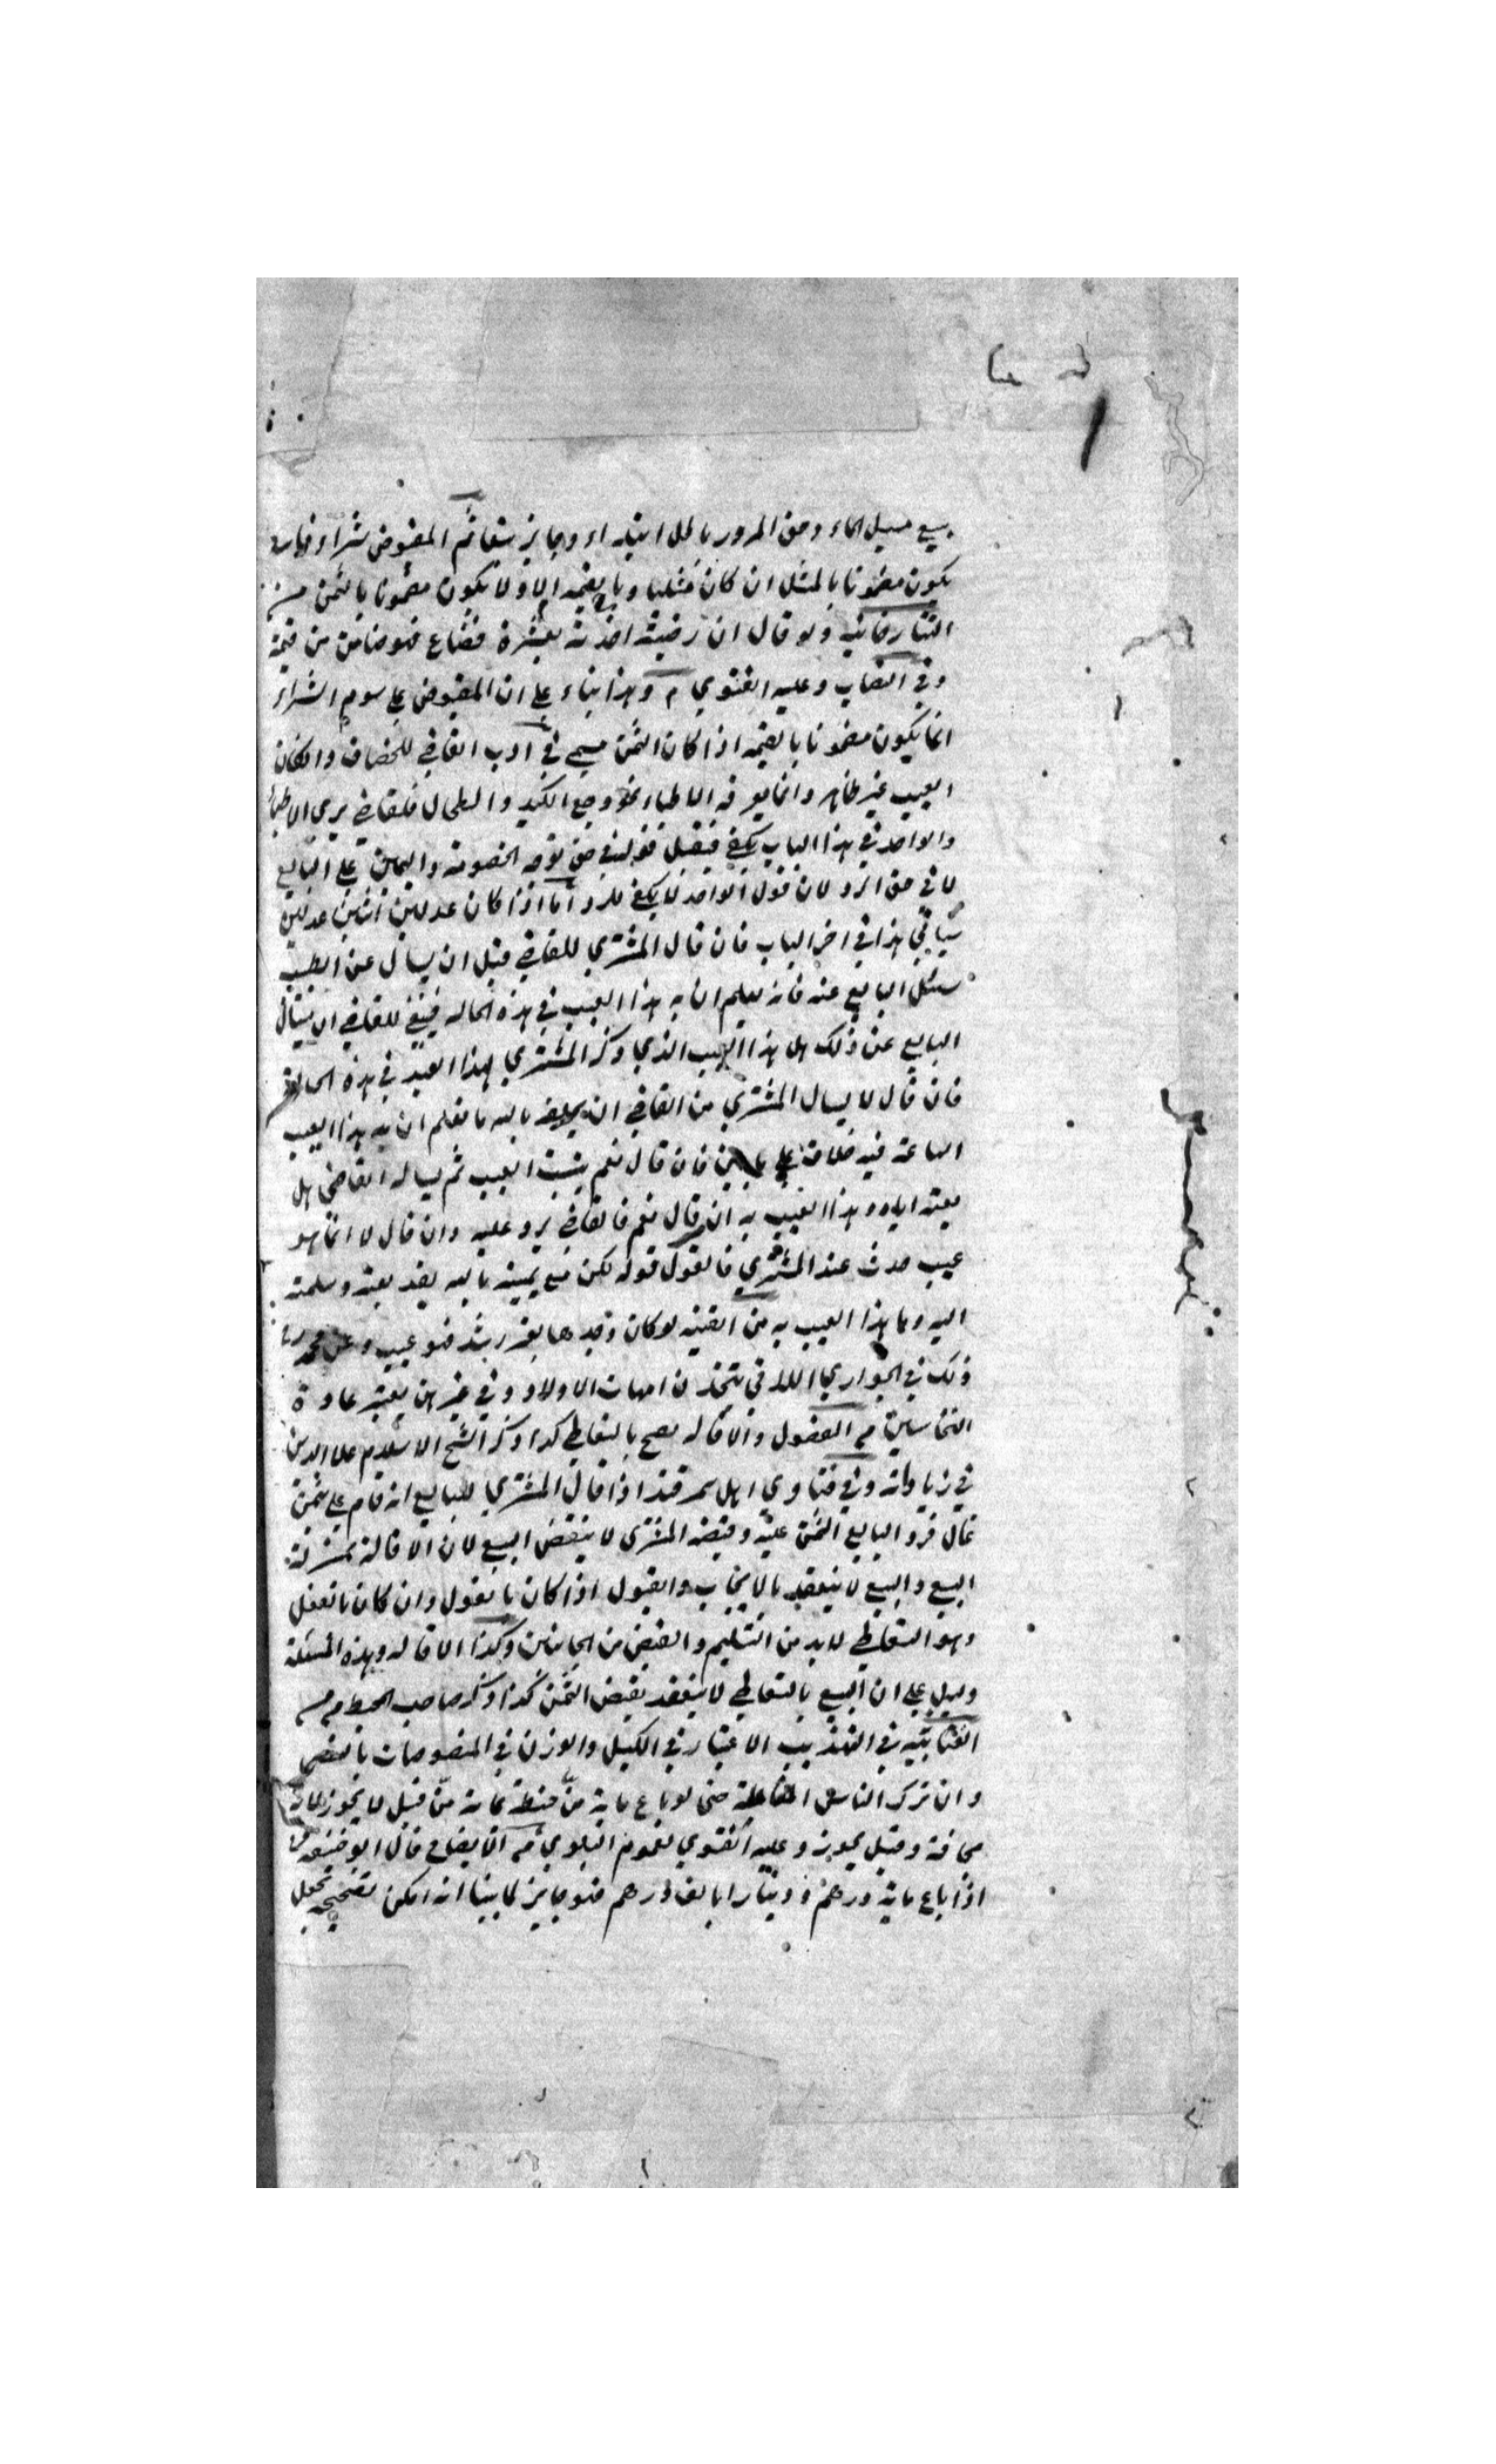 بيع مسيل الماء وحق المرور باطل ابتداء وجايز تبعا ثم المقبوض شراء فاسد
يكون مضمونا بالمثل ان كان مثليا وبالقيمة والا ولا يكون مضمونا بالثمن من
التتارخانيه ولو قال ان رضيته اخذته بعشرة فضاع فهو ضامن من قيمة
وفي النصاب وعليه الفتوي م وهذا بناء علي ان المقبوض علي سوم الشراء
انما يكون مضمونا بالقيمه اذا كان الثمن مسمي في ادب القاضي للخصاف وان كان
العيب غير ظاهر وانما يعرفه الاطباء نحو وجع الكبد والطحال فالقاضي يري الاطباء
والواحد في هذا الباب يكفي فيقبل قوله في حق توجه الخصومة واليمين علي البايع
لا في حق الرد لان قول الواحد لا يكفي للرد اما اذا كان عدلين اثنين عدلين
سياتي هذا في اخر الباب فان قال المشتري للقاضي قبل ان يسال عن الطبيب
سئل البايع عنه فانه يعلم ان به هذا العيب في هذه الحاله فينبغي للقاضي ان يسال
البايع عن ذلك هل هذا العيب الذي ذكر المشتري لهذا العبد في هذه الحالة
فان قال لا يسال المشتري من القاضي ان يحلفه بالله ما تعلم ان به هذا العيب
الساعة فيه خلاف علي ما بين فان قال نعم يثبت العيب ثم يساله القاضي هل
بعته اياه وهذا العيب به ان قال نعم فالقاضي يرد عليه وان قال لا انما هو
عيب حدث عند المشتري فالقول قوله لكن مع يمينه بالله لقد بعته وسلمته
اليه وما هذا العيب به من القنيه لو كان وجدها بغير رشد فهو عيب وعن محمد
ذلك في الجواري اللاتي يتخذن امهات الاولاد وفي غيرهن يعتبر عادة
النخاسين م الفصول والاقاله يصح بالتعاطي كذا ذكر الشيخ الاسلام علا الدين
في زياداته وفي فتاوي اهل سمرقند اذا قال المشتري للبايع انه قام علي بثمن
غال فرد البايع الثمن عليه وقبضه المشتري لا ينقض البيع لان الاقالة بمنزلة
البيع والبيع لا ينعقد بالايجاب والقبول اذا كان بالقول وان كان بالفعل
وهو التعاطي لا بد من التسليم والقبض من الجانبين وكذا الاقاله وهذه المسئلة
دليل علي ان البيع بالتعاطي لا ينعقد بقبض الثمن كذا ذكر صاحب المحيط م من
العتابيه في التهذيب الاعتبار في الكيل والوزن في المنصوصات بالنص
وان ترك الناس المعاملة حتي لو باع ماية من حنطة بماية من قيل لا يجوز لانه
مجازفة وقيل يجوز وعليه الفتوي لعموم البلوي م الايضاح قال ابو حنيفة
اذا باع ماية درهم ودينارا بالف درهم فهو جايز لما بينا انه امكن تصحيحه بجعل